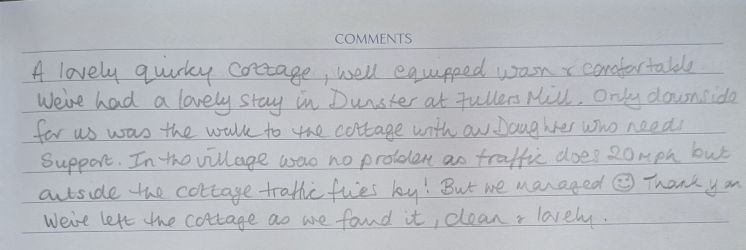 COMMENTS
A lovely quirky cottage, well equipped warm & comfortable
We've had a lovely stay in Dunster at Fullers Mill. Only downside
for us was the walk to the cottage with our Daughter who needs
Support. In the village was no problem as traffic does 20mph but
outside the cottage traffic flies by! But we managed ☺ Thank you
We've left the cottage as we found it, clean & lovely.